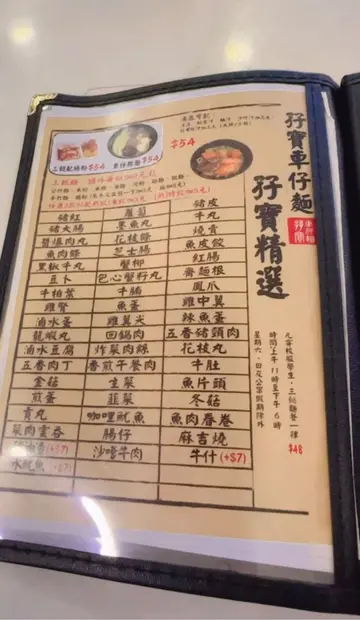 孖寶車仔麵
孖寶精選
三餸配腸粉$54
車仔撈麵$54
$54
豬紅 蘿蔔 豬皮
豬大腸 墨魚丸 牛丸
爆肉丸 花枝餃 燒賣
魚肉餃 芝士腸 魚皮餃
黑椒牛丸 蟹柳 紅腸
豆卜 包心蟹籽丸 齋麵根
牛柏葉 牛腩 鳳爪
雞腎 魚蛋 雞中翼
滷水蛋 雞翼尖 辣魚蛋
龍蝦丸 回鍋肉 五香豬頸肉
滷水豆腐 炸菜肉絲 花枝丸
五香肉丁 香煎午餐肉 牛肚
金菇 生菜 魚片頭
煎蛋 韭菜 冬菇
貢丸 咖喱魷魚 魚肉春卷
菜肉雲吞 腸仔 麻吉燒
(+$7) 沙嗲牛肉 牛什(+$7)
水魷魚(+$7)
凡穿校服學生,三餸麵餐一律$48
時間:上午11時至下午6時
星期六、日及公眾假期除外